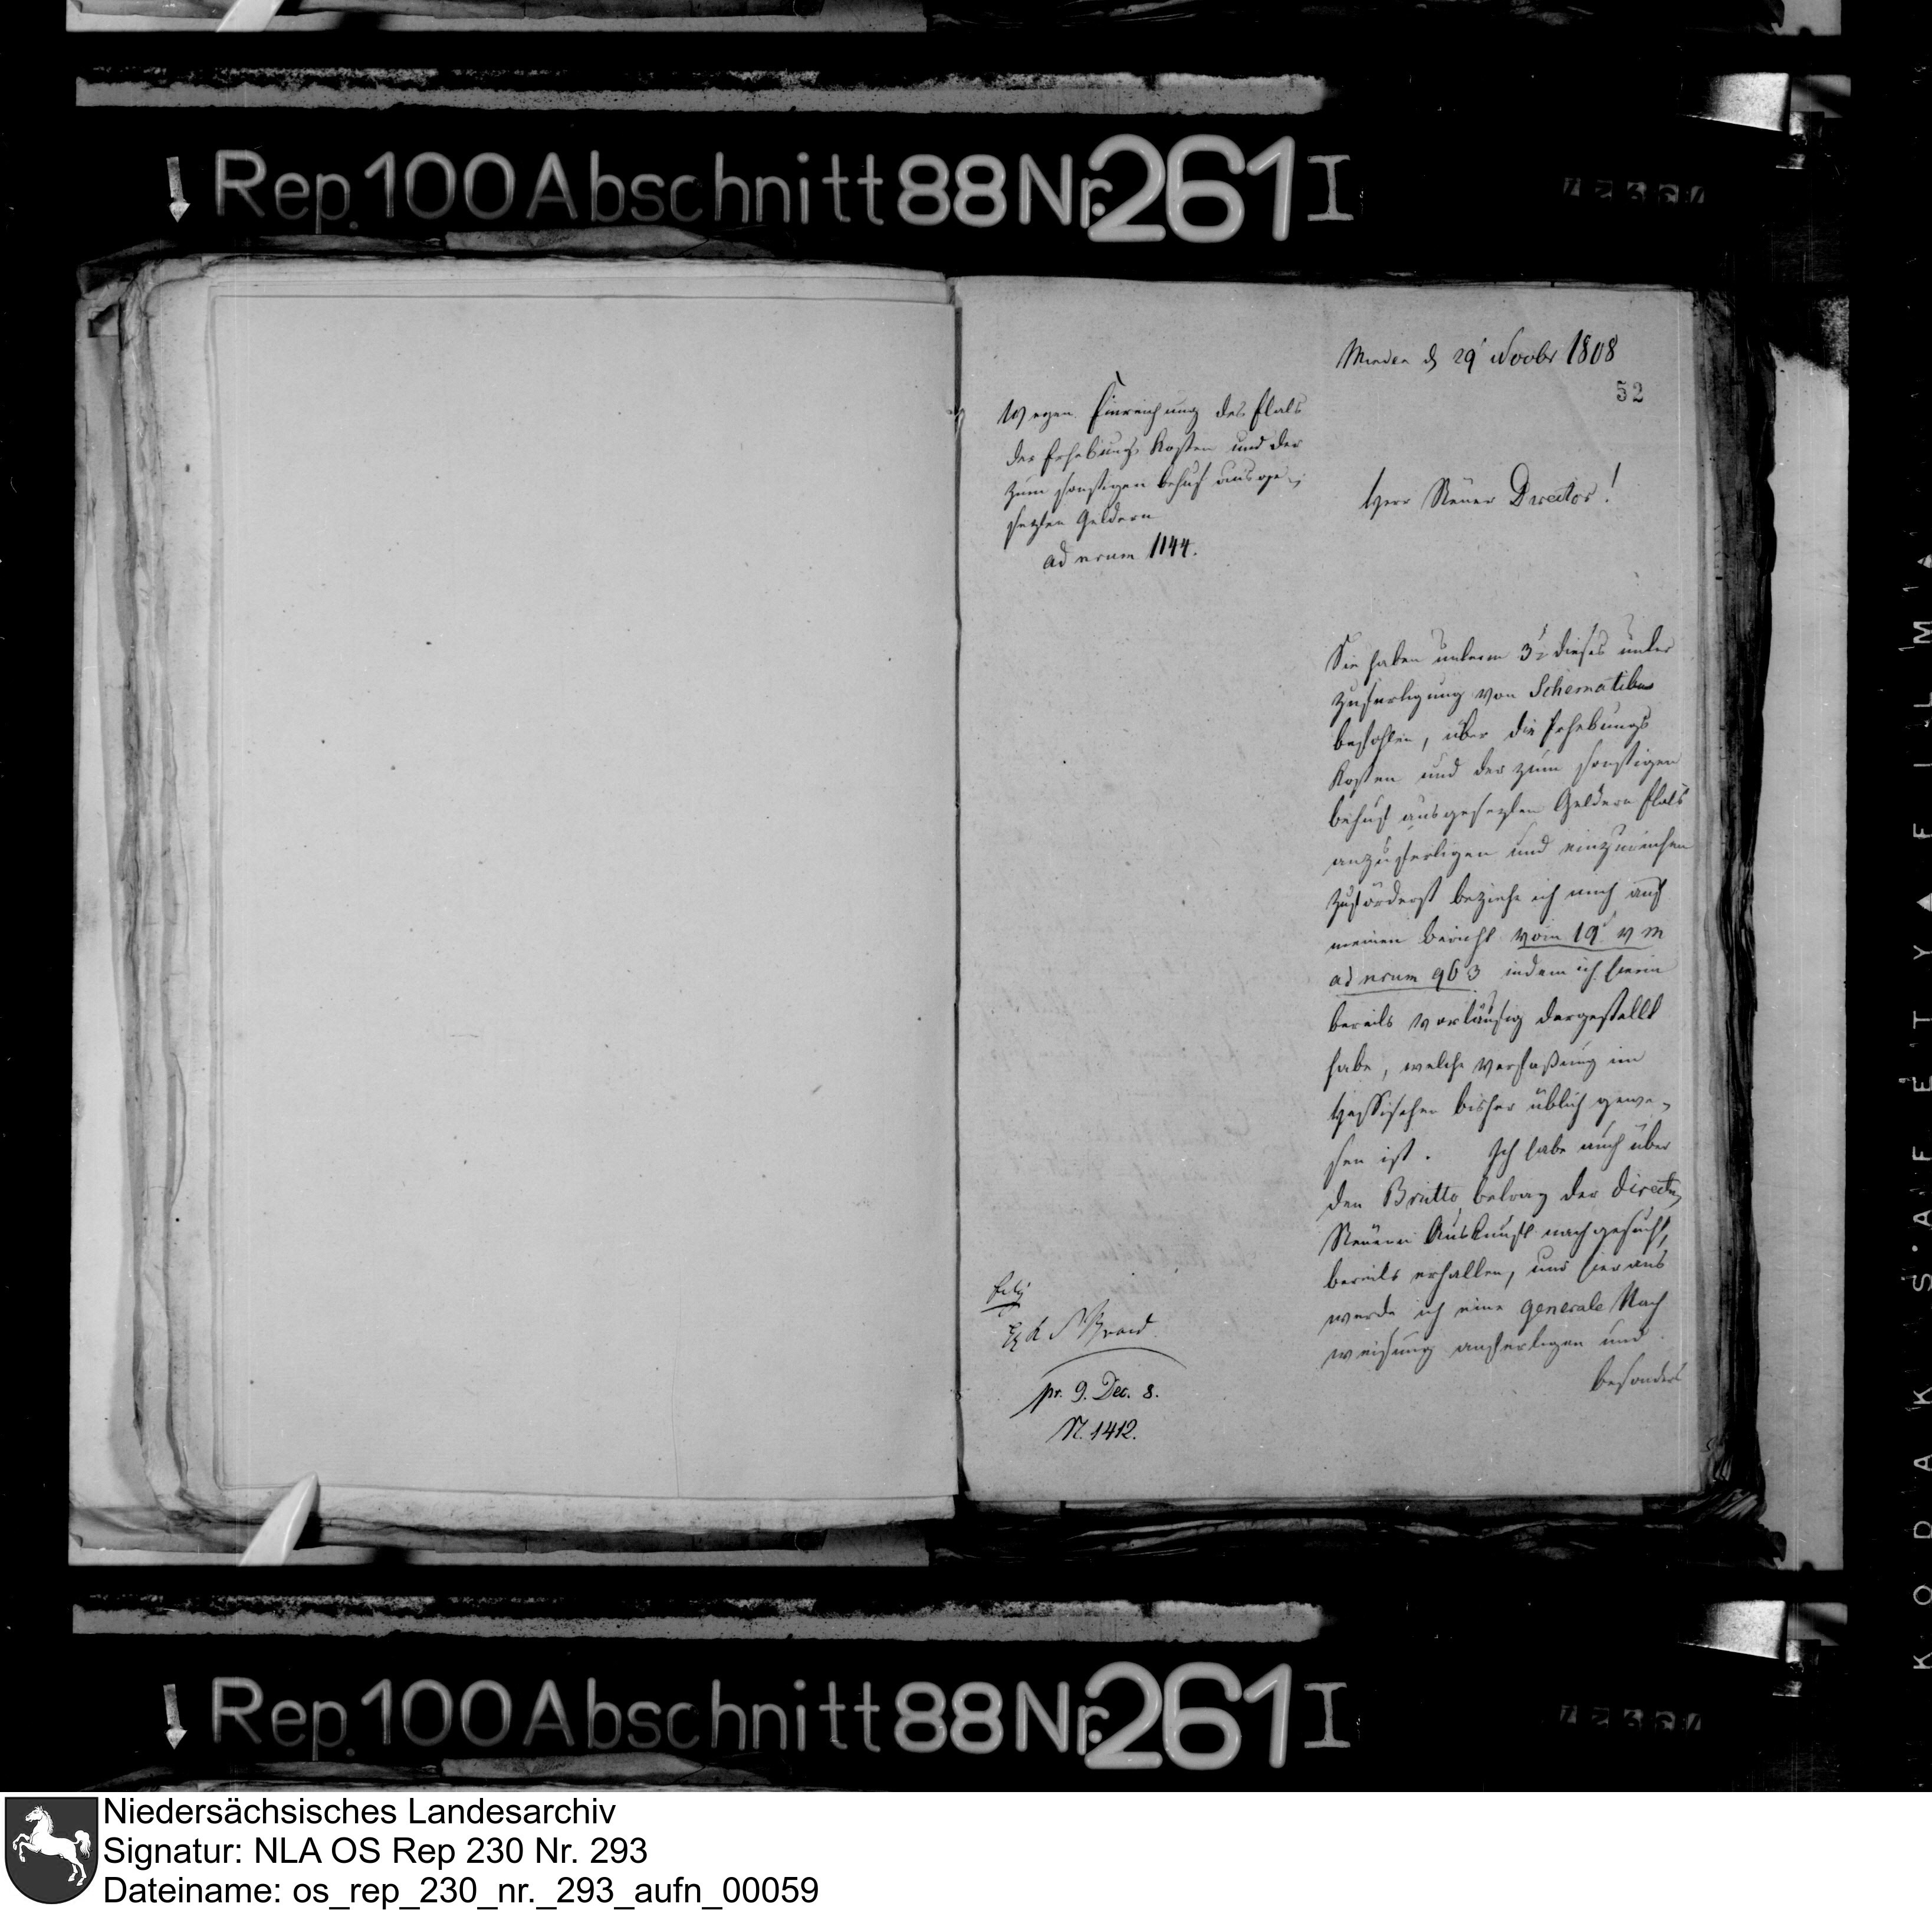 Rep. 100 Abschnitt 88 Nr. 261 I
Minden d 29' Novbr 1808
52
Wegen Einreichung des Etats
der Erhebungs Kosten und der
zum sonstigen Behuf ausge-
sezten Geldern
ad num 1144.
Herr Steuer Director!
Sie haben unterm 3t dieses unter
Zufertigung von Schematibus
befohlen, über die Erhebungs
Kosten und der zum sonstigen
Behuf ausgesezten Geldern Etats
anzufertigen und einzureichen
Zuförderst beziehe ich mich auf
meinen Bericht vom 19' v m
ad num 963 indem ich hierin
bereits vorläufig dargestellt
habe, welche Verfaßung im
Hessischen bisher üblich gewe-
sen ist. Ich habe auch über
den Brutto betrag der directen
Steuern Auskunft nachgesucht,
bereits erhalten, und hieraus
werde ich eine generale Nach
weisung anfertigen und
besonders
pr. 9. Dec. 8.
N. 1412.
Rep. 100 Abschnitt 88 Nr. 261 I
KODAK SAFETY FILM
Niedersächsisches Landesarchiv
Signatur: NLA OS Rep 230 Nr. 293
Dateiname: os_rep_230_nr._293_aufn_00059